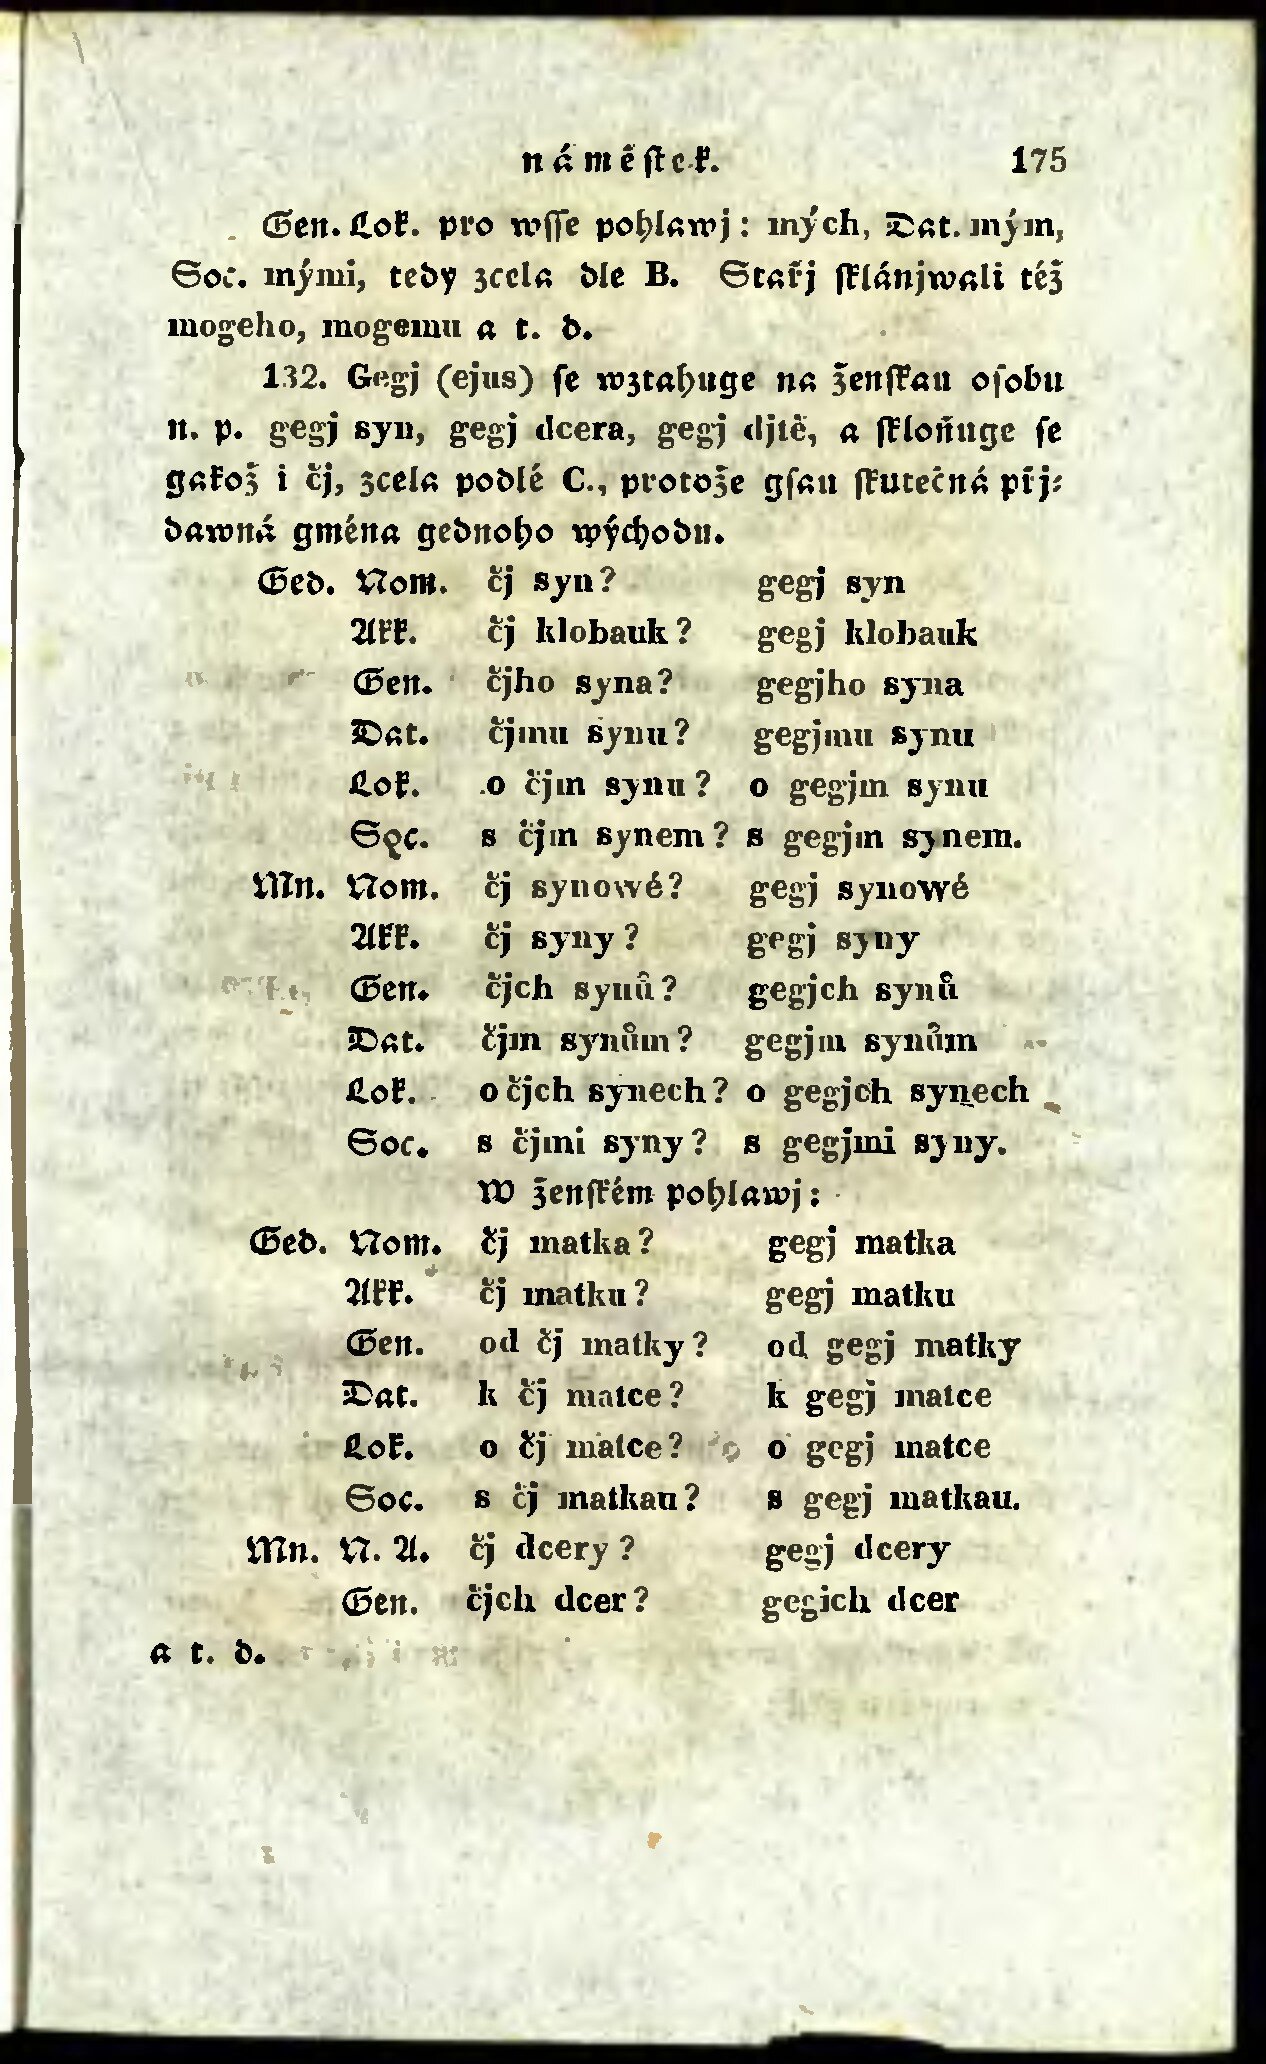 náměſtek. 175
Gen. Lok. pro wſſe pohlawj: mých, Dat. mým,
Soc. mými, tedy zcela dle B. Stařj ſklánjwali též
mogeho, mogemu a t. d.
132. Gegj (ejus) ſe wztahuge na ženſkau oſobu
n. p. gegj syn, gegj dcera, gegj djtě, a ſkloňuge ſe
gakož i čj, zcela podlé C., protože gſau ſkutečná přj⸗
dawná gména gednoho wýchodu.
Ged. Nom. čj syn? gegj syn
Akk. čj klobauk? gegj klobauk
Gen. čjho syna? gegjho syna
Dat. čjmu synu? gegjmu synu
Lok. o čjm synu? o gegjm synu
Soc. s čjm synem? s gegjm synem.
Mn. Nom. čj synowé? gegj synowé
Akk. čj syny? gegj syny
Gen. čjch synů? gegjch synů
Dat. čjm synům? gegjm synům
Lok. o čjch synech? o gegjch synech
Soc. s čjmi syny? s gegjmi syny.
W ženſkém pohlawj:
Ged. Nom. čj matka? gegj matka
Akk. čj matku? gegj matku
Gen. od čj matky? od gegj matky
Dat. k čj matce? k gegj matce
Lok. o čj matce? o gegj matce
Soc. s čj matkau? s gegj matkau.
Mn. N. A. čj dcery? gegj dcery
Gen. čjch dcer? gegich dcer
a t. d.